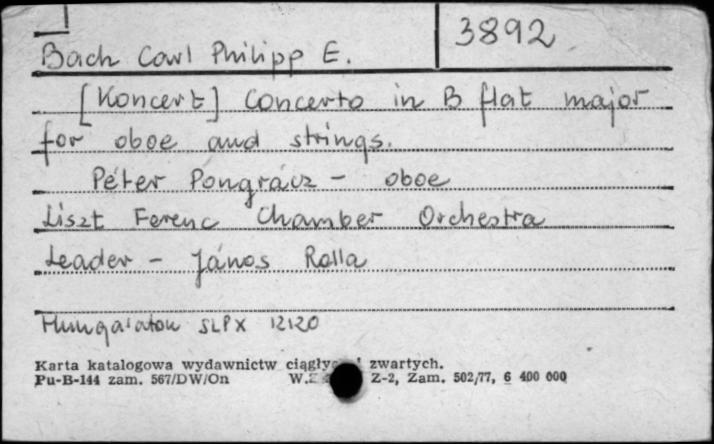 3892
Bach Carl Philipp E.
[Koncert] Concerto in B flat major
for oboe and strings.
Péter Pongrácz - oboe
Liszt Ferenc Chamber Orchestra
Leader - János Rolla
Hungaraton SLPX 12120
Karta katalogowa wydawnictw zwartych.
Pu-B-144 zam. 567/DW/On Z-2, Zam. 502/77, 6 400 000